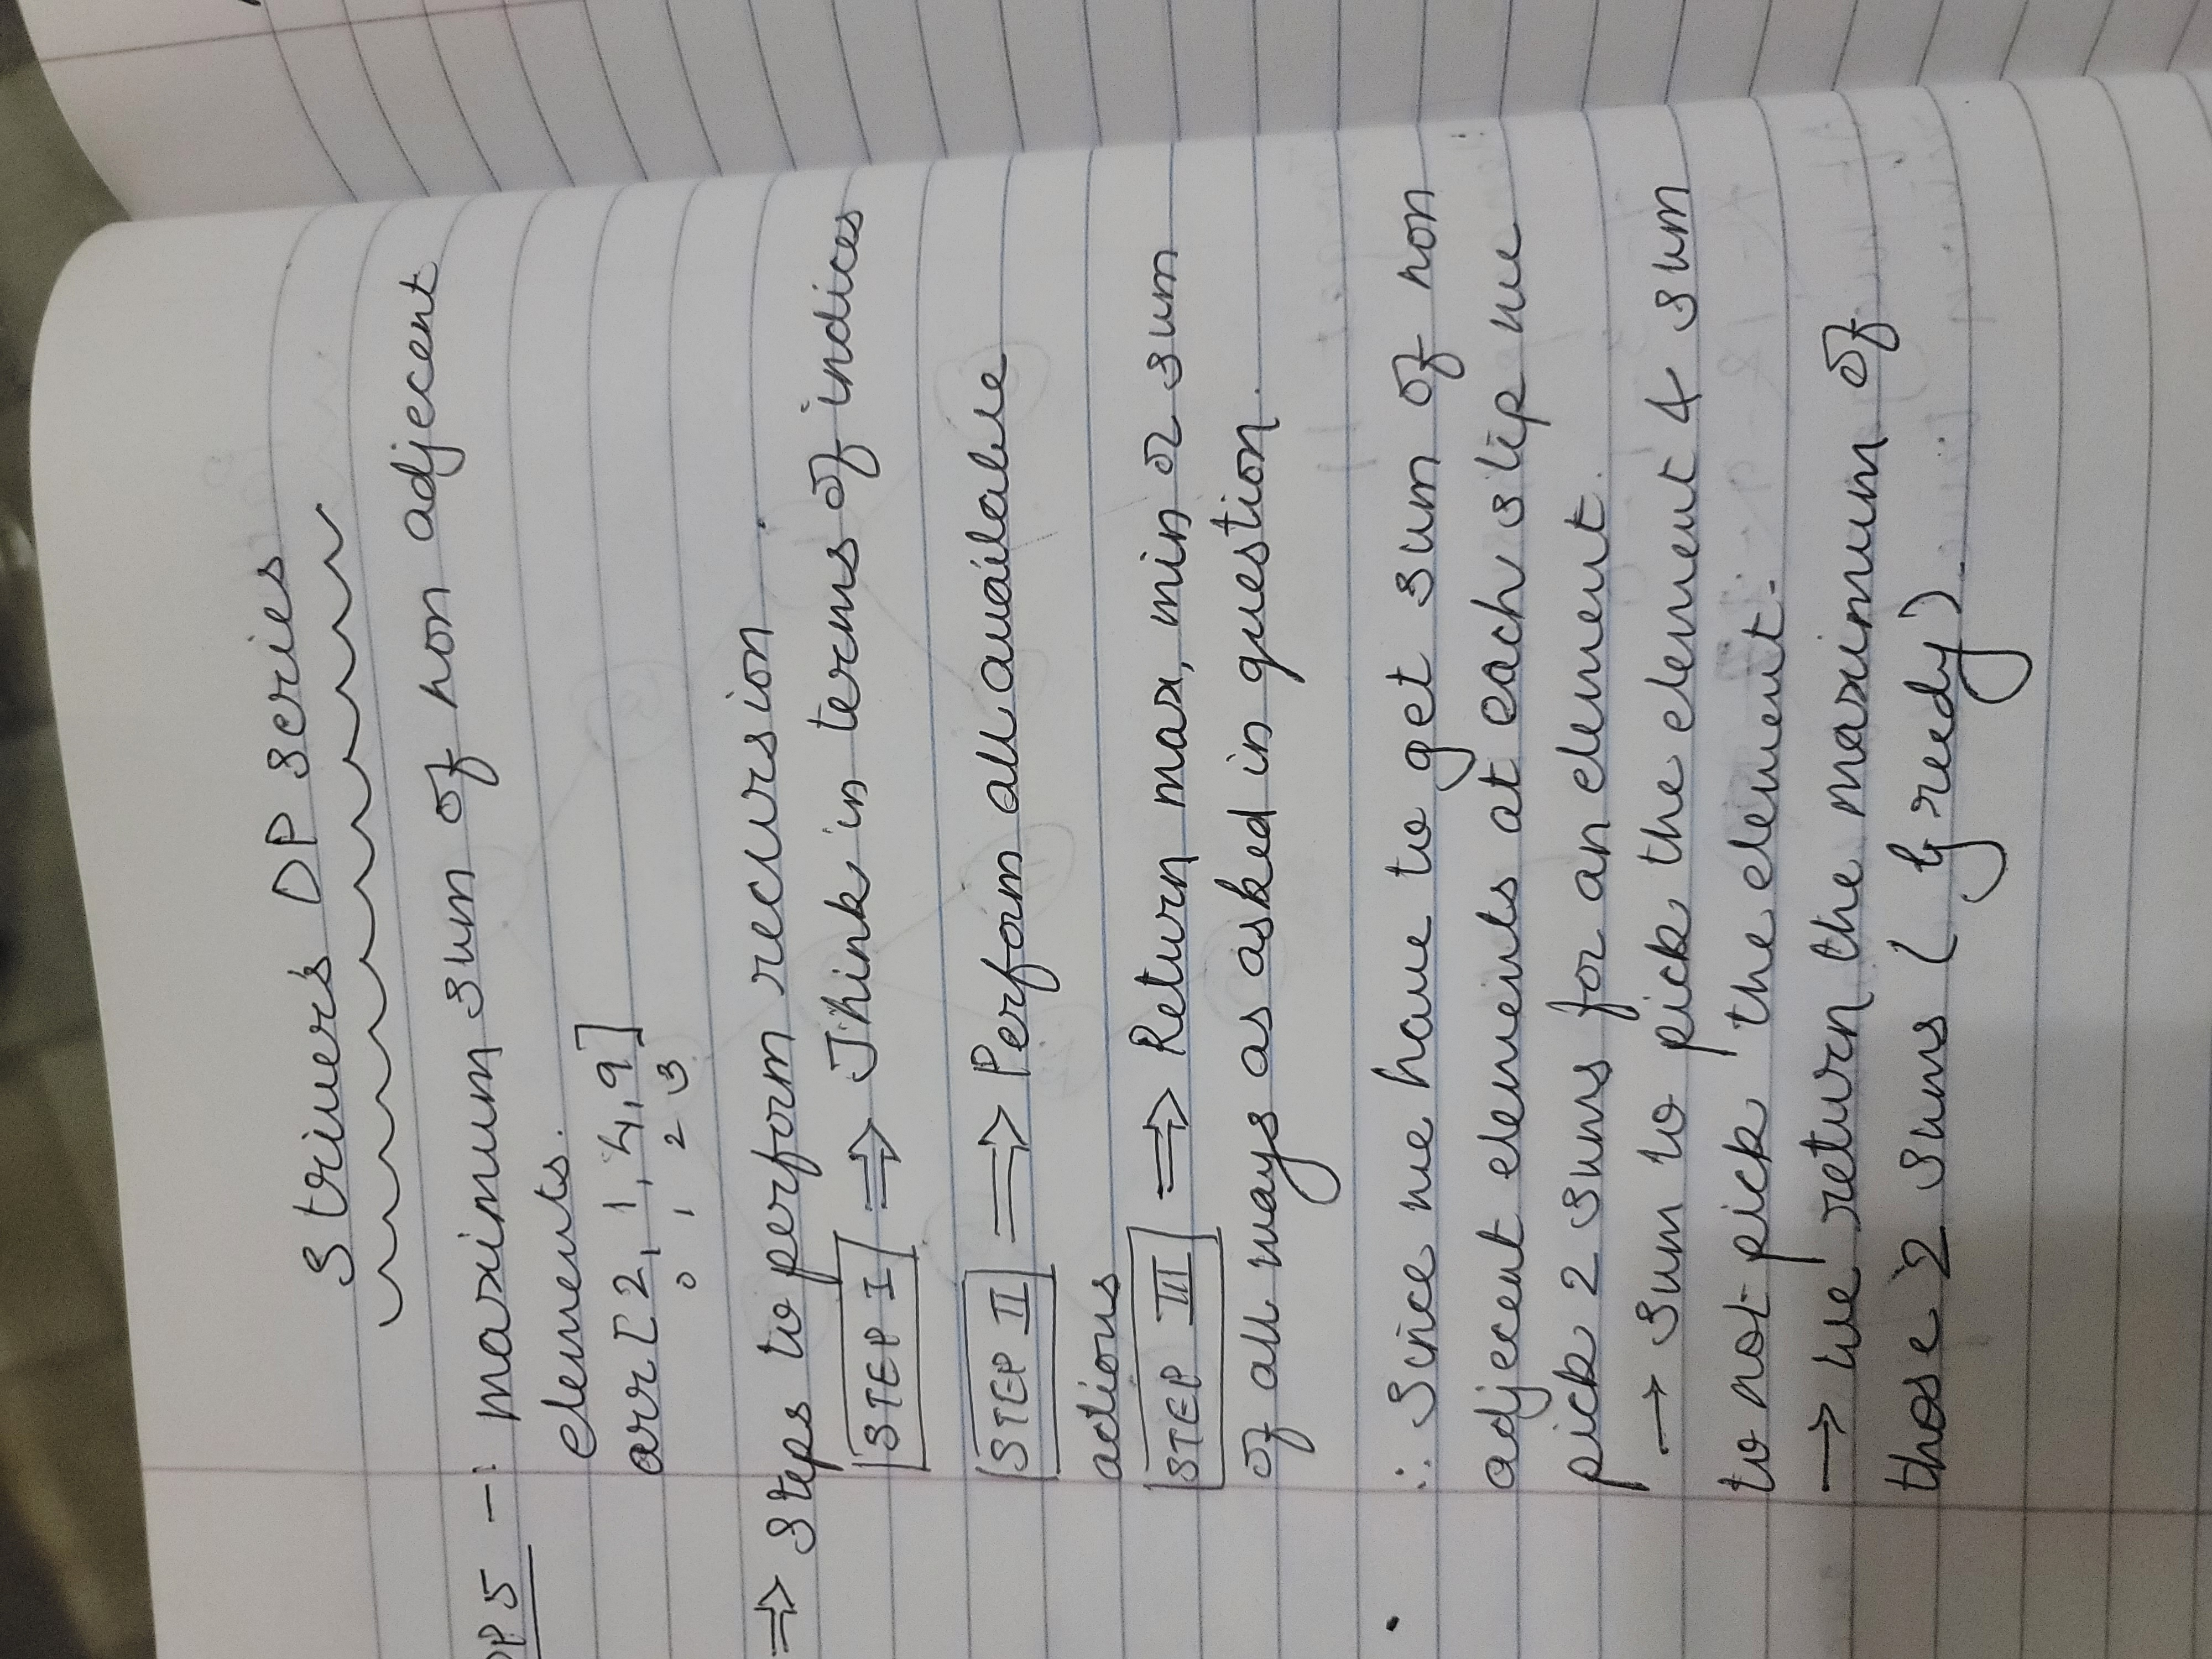 Striver's DP series
DP 5 -: maximum sum of non adjecent
elements.
arr [2, 1, 4, 9]
0 1 2 3
⇒ Steps to perform recursion
STEP I ⇒ Think in terms of indices
STEP II ⇒ Perform all available
actions
STEP III ⇒ Return max, min or sum
of all ways as asked in question.
∴ Since we have to get sum of non
adjecent elements at each step we
pick 2 sums for an element.
→ sum to pick the element & sum
to not pick the element.
→ we return the maximum of
those 2 sums ( Greedy).